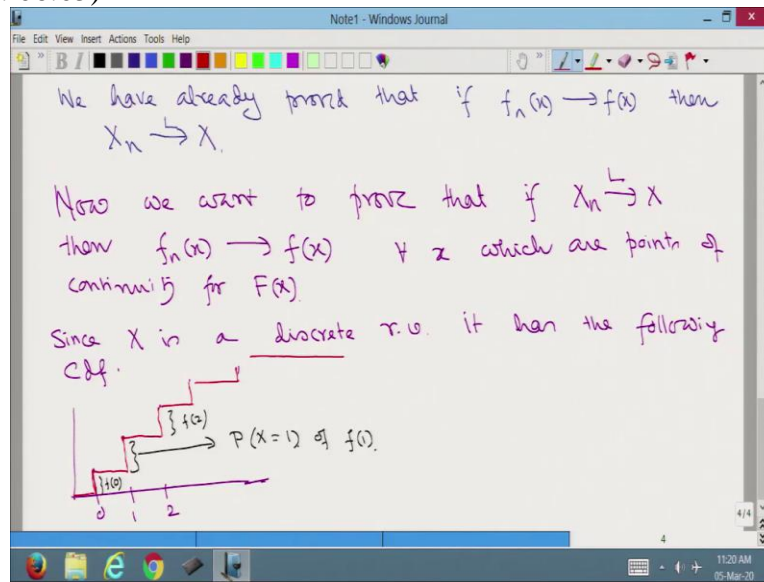 Note1 - Windows Journal
File Edit View Insert Actions Tools Help
We have already proved that if fₙ(x) → f(x) then
Xₙ →ᴸ X.
Now we want to prove that if Xₙ →ᴸ X
then fₙ(x) → f(x) ∀ x which are points of
continuity for F(x)
Since X is a discrete r.v. it has the following
Cdf.
f(2)
P(X=1) of f(1).
f(0)
0 1 2
4/4
4
11:20 AM
05-Mar-20